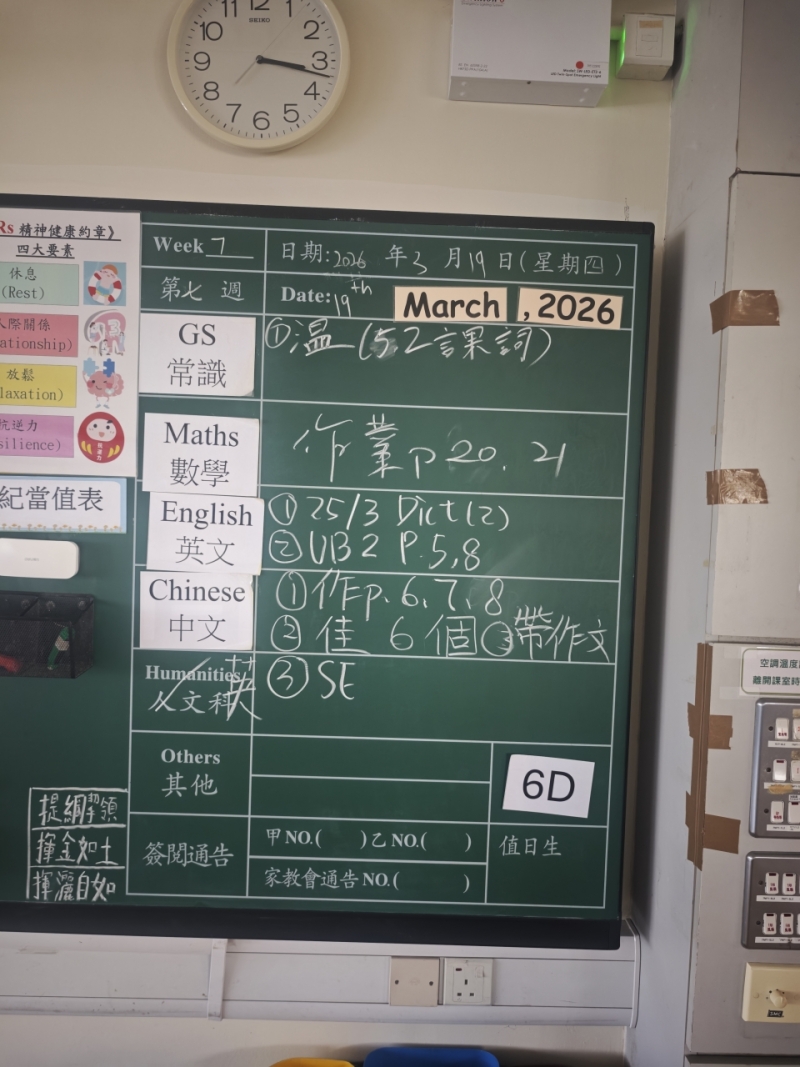 11 12 1 2 3 4 5 6 7 8 9 10
SEIKO
Rs 精神健康約章》
四大要素
休息
(Rest)
人際關係
ationship)
放鬆
laxation)
抗逆力
silience)
紀當值表
Week 7
日期:2026 年3 月19 日(星期四)
第七 週
Date: 19th March , 2026
GS
常識
①溫(52言果詞)
Maths
數學
作業p20, 21
English
英文
① 25/3 Dict (2)
② UB2 P.5,8
Chinese
中文
①作p.6,7,8
② 佳 6 個 ③帶作文
Humanities
人文科
英
③ SE
Others
其他
6D
簽閱通告
甲 NO.( )乙 NO.( )
家教會通告 NO.( )
值日生
提綱挈領
揮金如土
揮灑自如
空調溫度
離開課室時